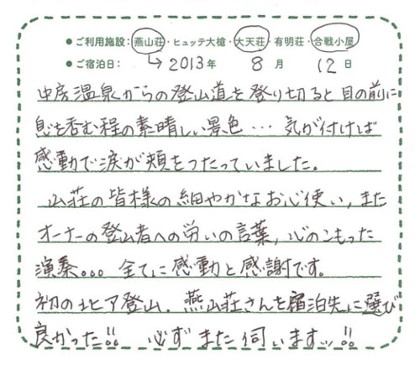 ●ご利用施設：燕山荘・ヒュッテ大槍・大天荘・有明荘・合戦小屋
●ご宿泊日：→2013年 8月 12日
中房温泉からの登山道を登り切ると目の前に
息を呑む程の素晴しい景色… 気が付けば
感動で涙が頬をつたっていました。
山荘の皆様の細やかなお心使い，また
オーナーの登山者への労いの言葉，心のこもった
演奏。。。全てに感動と感謝です。
初の北ア登山．燕山荘さんを宿泊先に選び
良かった!! 必ずまた伺いますッ!!